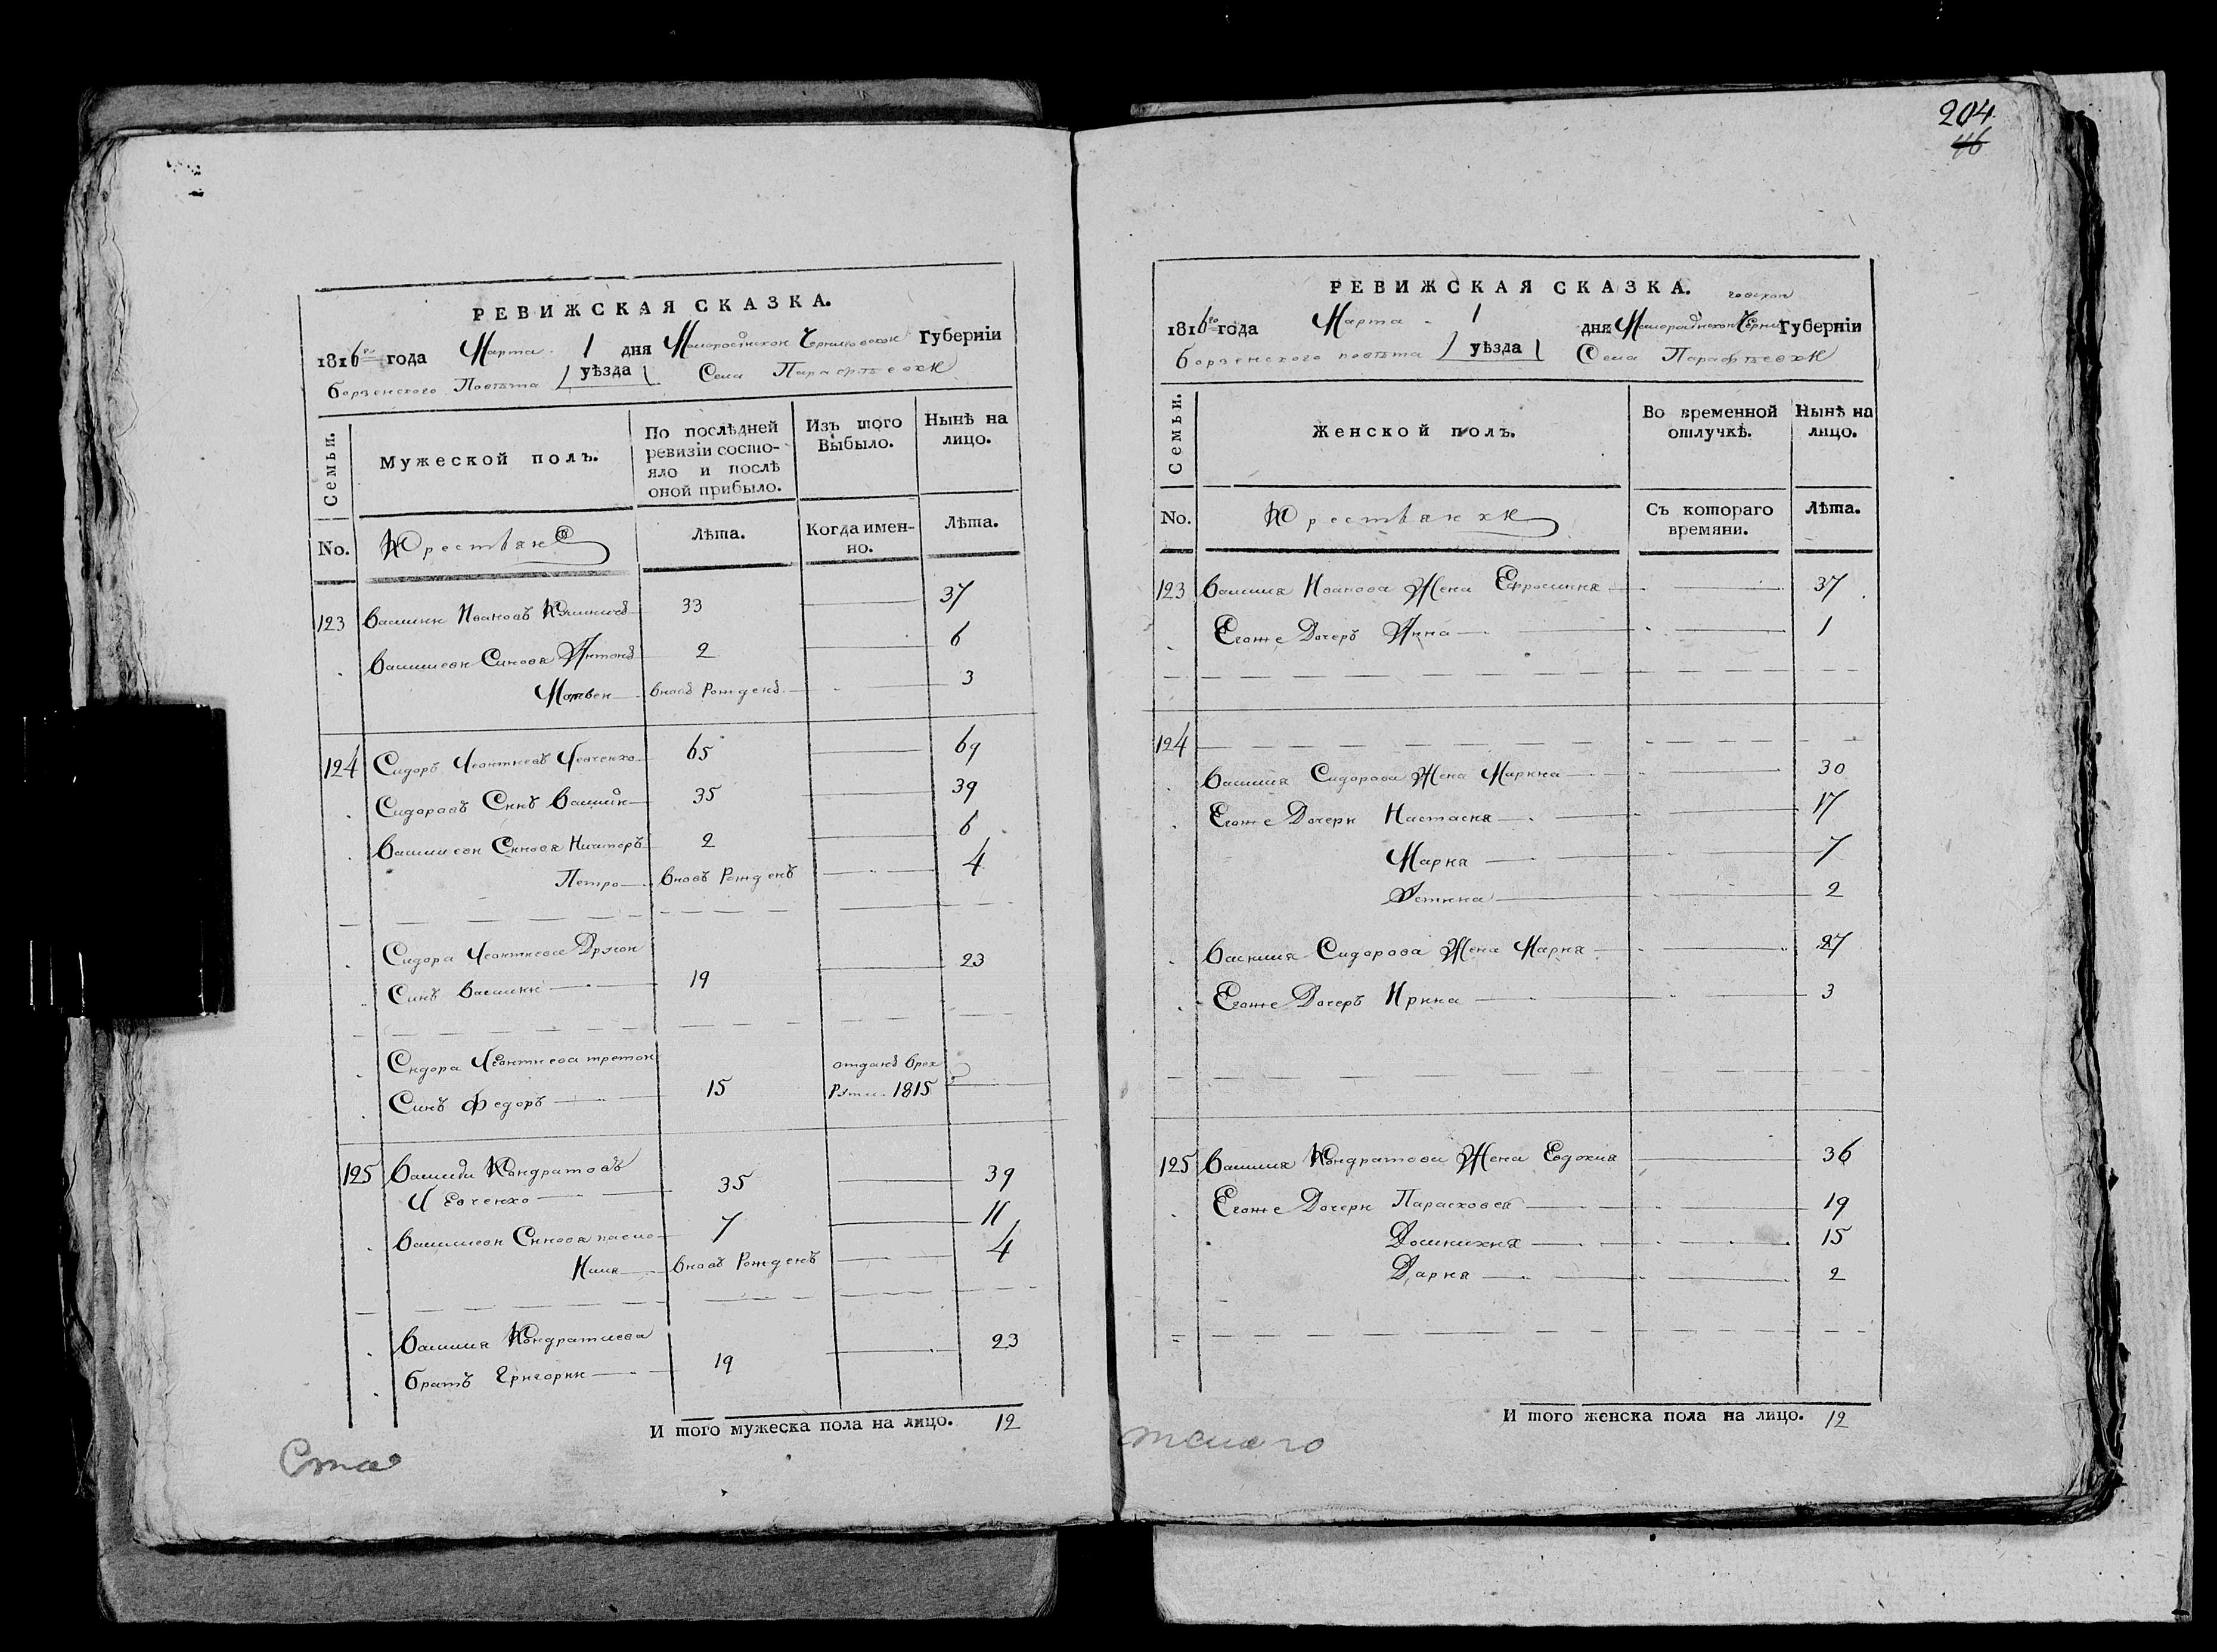 204.
46
РЕВИЖСКАЯ СКАЗКА.
1816го года Марта 1 дня Малоросийской Черниговской Губерніи
борзенского Повѣта уѣзда Села Парафѣевки
Семьи.
Мужеской полъ.
По послѣдней ревизіи состояло и послѣ оной прибыло.
Изъ того Выбыло.
Нынѣ на лицо.
No.
Крестьяне
Лѣта.
Когда именно.
Лѣта.
123 Василий Ивановъ 33 37
Василиеви Синовя Антонъ 2 6
Матвей вновъ рожденъ 3
124 Сидоръ Леонтиевъ Левченко 65 69
Сидоровъ Синъ Василий 35 39
Василиеви Синовя Никиторъ 2 6
Петро вновъ рожденъ 4
Сидора Леонтиева Другой
Синъ Василий 19 23
Сидора Леонтиева третой отданъ врек
Синъ Федоръ 15 руты 1815
125 Василий Кондратовъ
Левченко 35 39
Василиеви Синовя 7 11
Илия вновъ рожденъ 4
Василия Кондратиева
братъ Григорий 19 23
И того мужеска пола на лицо. 12
Ста
РЕВИЖСКАЯ СКАЗКА.
1816го года Марта 1 дня Малоросийской Черниговской Губерніи
борзенского повѣта уѣзда Села Парафѣевки
Семьи.
Женской полъ.
Во временной отлучкѣ.
Нынѣ на лицо.
No.
Крестьянки
Съ котораго времяни.
Лѣта.
123 Василия Иванова Жена Евросиния 37
Егоже Дочеръ Анна 1
124
Василия Сидорова Жена Марина 30
Егоже Дочери Настасия 17
Мария 7
Устина 2
Василия Сидорова Жена Мария 27
Егоже Дочеръ Ирина 3
125 Василия Кондратова Жена Евдокия 36
Егоже Дочери Парасковея 19
Доминикия 15
Дария 2
И того женска пола на лицо. 12